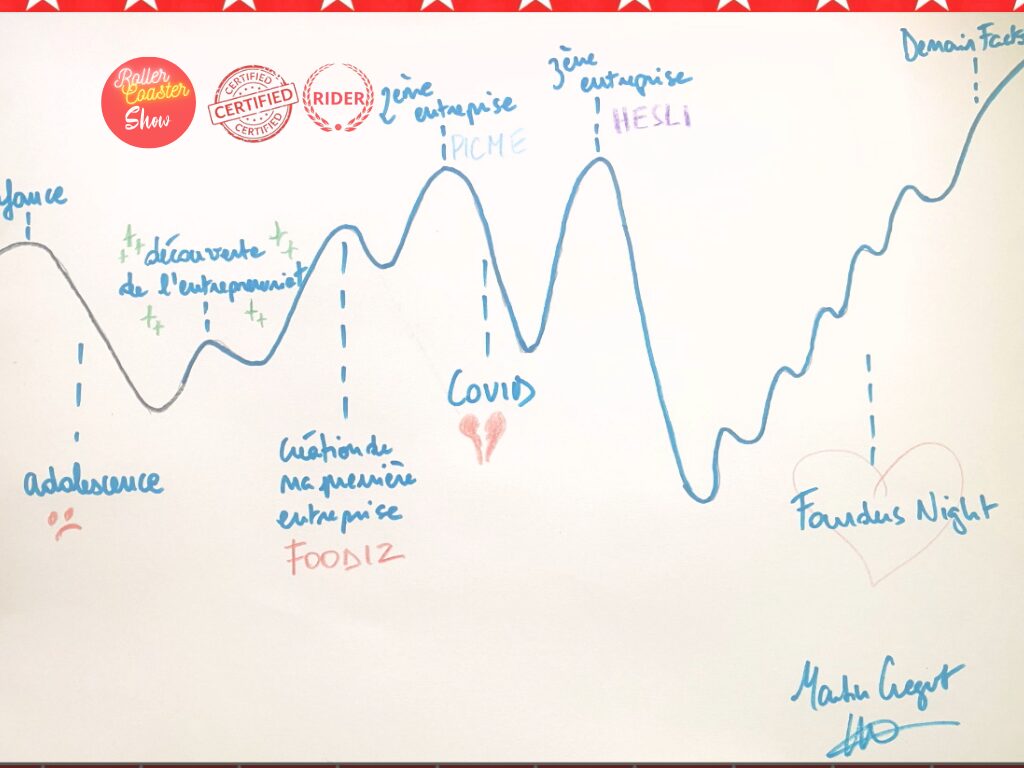 Roller
Coaster
Show
CERTIFIED
CERTIFIED
CERTIFIED
RIDER
2ème
entreprise
PICME
3ème
entreprise
HESLI
Demain Facts
fance
découverte
de l'entrepreneuriat
COVID
adolescence
Création de
ma première
entreprise
FOODIZ
Founders Night
Martin